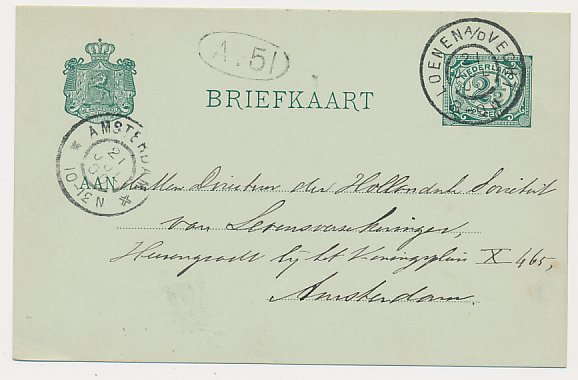 A.51
LOENEN A/D VECHT
NEDERLAND
2½
BRIEFKAART
AMSTERDAM
21
10
N
AAN de Heeren Directeuren der Hollandsche Societeit
van Levensverzekeringen,
Heerengracht bij het Koningsplein X 465,
Amsterdam.